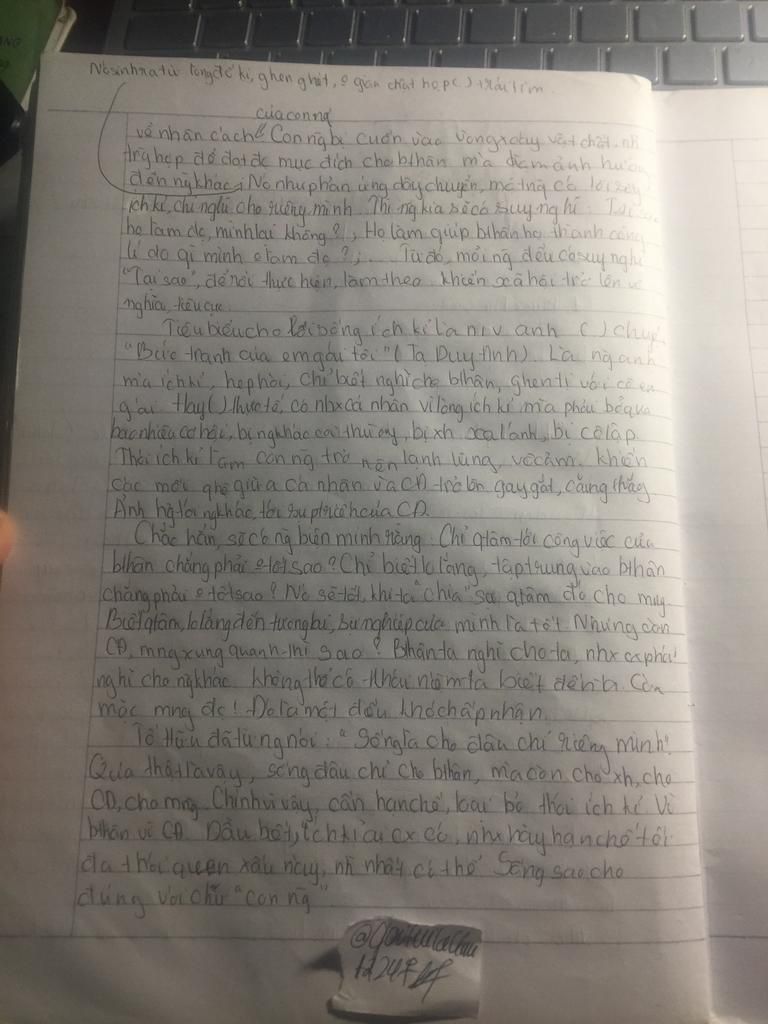 Nó sinh ra từ lòng đố kị, ghen ghét, ο gian chật hẹp ( ) trái tim.
của con ng
về nhân cách. Con ng bị cuốn vào vòng xoáy vật chất, nh
trg hợp để đạt đc mục đích cho bthân mà đã ảnh hưởng
đến ng khác; Nó như phản ứng dây chuyền, một ng có lối sống
ích kỉ, chỉ nghĩ cho riêng mình. Thì ng kia sẽ có suy nghĩ: Tại sao
họ làm đc, mình lại không?; Họ làm giúp bthân họ thành công
lí do gì mình ο làm đc?;... Từ đó, mỗi ng đều có suy nghĩ
"Tại sao", để rồi thực hiện, làm theo khiến xã hội trở lên vô
nghĩa, tiêu cực.
Tiêu biểu cho lối sống ích kỉ là n.v anh ( ) chuyện
"Bức tranh của em gái tôi" (Tạ Duy Anh). Là ng anh
mà ích kỉ, hẹp hòi, chỉ biết nghĩ cho bthân, ghen tị với cô em
gái. Hay ( ) thực tế, có nhx cá nhân vì lòng ích kỉ mà phải bỏ qua
bao nhiêu cơ hội, bị ng khác coi thường, bị xh xa lánh, bị cô lập.
Thói ích kỉ làm con ng trở nên lạnh lùng, vô cảm. Khiến
các mối qhệ giữa cá nhân và CĐ trở lên gay gắt, căng thẳng
Ảnh hg tới ng khác, tới sự ptriển của CĐ.
Chắc hẳn, sẽ có ng biện minh rằng: Chỉ qtâm tới công việc của
bthân chẳng phải ο tốt sao? Chỉ biết lo lắng, tập trung vào bthân
chẳng phải ο tốt sao? Nó sẽ tốt, khi ta "chia" sự qtâm đó cho mng
Biết qtâm, lo lắng đến tương lai, sự nghiệp của mình là tốt. Nhưng còn
CĐ, mng xung quanh thì sao? Bthân ta nghĩ cho ta, nhx cx phải
nghĩ cho ng khác. Không thể có khái niệm ta biết đến ta. Còn
mặc mng đc! Đó là một điều khó chấp nhận.
Tố Hữu đã từng nói: "Sống là cho đâu chỉ riêng mình".
Quả thật là vậy, sống đâu chỉ cho bthân, mà còn cho xh, cho
CĐ, cho mng. Chính vì vậy, cần hạn chế, loại bỏ thói ích kỉ. Vì
bthân vì CĐ. Dẫu biết, ích kỉ ai cx có, nhx hãy hạn chế tối
đa thói quen xấu này, nh nhất có thể. Sống sao cho
đúng với chữ "con ng"